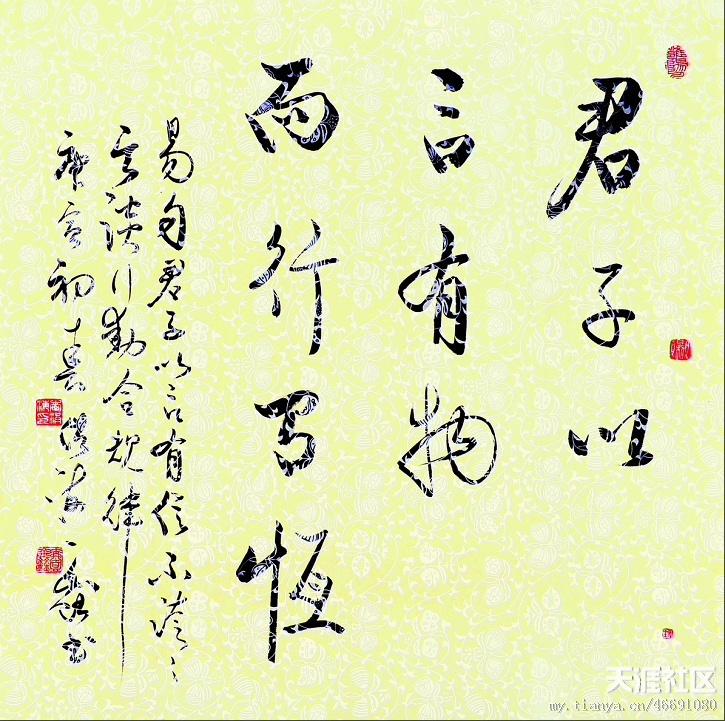 君子以
言有物
而行有恒
易句君子以言有信不
言談行動合規律
庚寅初春
天涯社区
my.tianya.cn/46691080